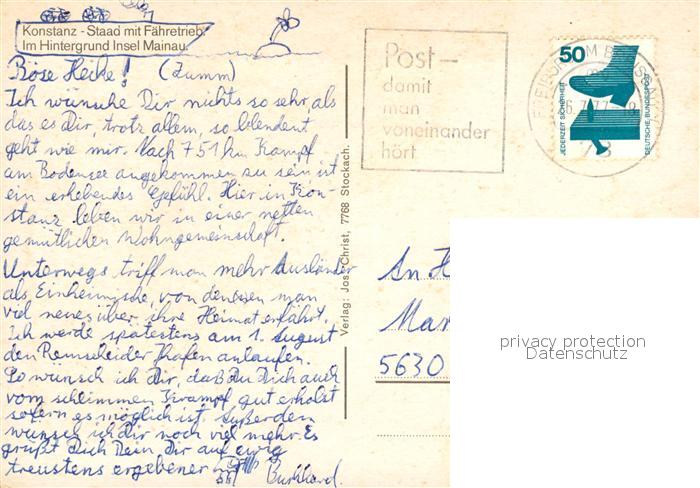 Konstanz - Staad mit Fähretrieb.
Im Hintergrund Insel Mainau.
Böse Heike! (Zumm)
Ich wünsche Dir nichts so sehr, als
das es Dir, trotz allem, so blendent
geht wie mir. Nach 751 km Krampf
am Bodensee angekommen zu sein ist
ein erhebendes Gefühl. Hier in Kon-
stanz leben wir in einer netten
gemütlichen Wohngemeinschaft.
Unterwegs triff man mehr Ausländer
als Einheimische, von denen man
viel neues über ihre Heimat erfährt.
Ich werde spätestens am 1. August
den Remscheider Hafen anlaufen.
So wünsch ich Dir, daß Du Dich auch
vom schlimmen Krampf gut erholst
sofern es möglich ist. Außerdem
wünsch ich Dir noch viel mehr. Es
grüßt Dich Dein, Dir auf ewig
treustens ergebener Burkhard.
Verlag: Jos. Christ, 7768 Stockach.
Post-
damit
man
voneinander
hört
50
JEDERZEIT SICHERHEIT
DEUTSCHE BUNDESPOST
An H
Mar
5630
privacy protection
Datenschutz